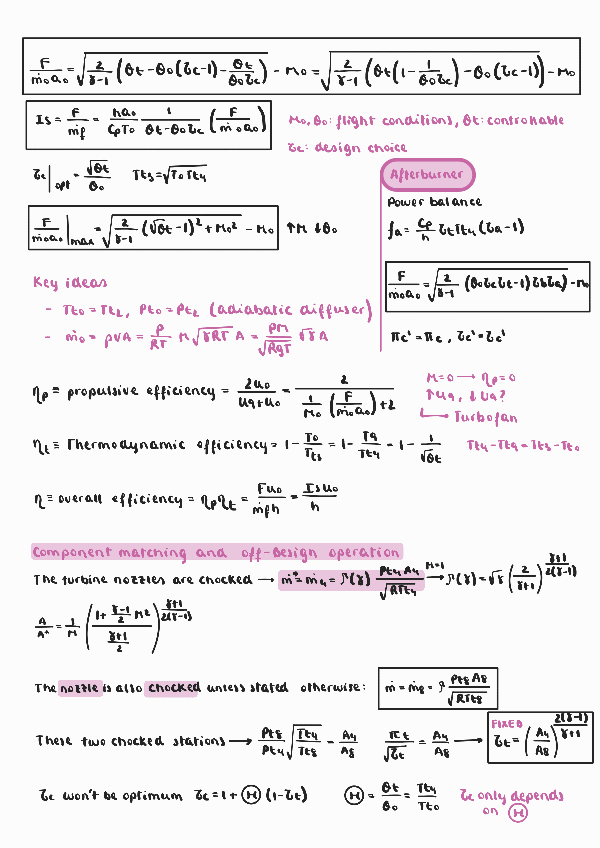 F/ṁ₀a₀ = √(2/(γ-1) (θt - θ₀(τc-1) - θt/(θ₀τc))) - M₀ = √(2/(γ-1) (θt(1 - 1/(θ₀τc)) - θ₀(τc-1))) - M₀
Is = F/ṁf = ha₀/(CpT₀) 1/(θt-θ₀τc) (F/ṁ₀a₀)
M₀, θ₀: flight conditions, θt: controllable
τc: design choice
τc|opt = √θt/θ₀ Tt₃ = √(T₀Tt₄)
F/ṁ₀a₀|max = √(2/(γ-1) (√θt - 1)² + M₀²) - M₀ ↑M ↓θ₀
Afterburner
Power balance
fa = Cp/h τtTt₄(τa-1)
F/ṁ₀a₀ = √(2/(γ-1) (θ₀τcτt-1)τbτa) - M₀
πc' = πc, τc' = τc'
Key ideas
- Tt₀ = Tt₂, Pt₀ = Pt₂ (adiabatic diffuser)
- ṁ₀ = ρvA = P/RT M√(γRT) A = PM/√(RgT) √γ A
ηp ≡ propulsive efficiency = 2u₀/(u9+u₀) = 2/(1/M₀ (F/ṁ₀a₀) + 2)
M=0 → ηp=0
↑u9, ↓u9?
↳ Turbofan
ηt ≡ Thermodynamic efficiency = 1 - T₀/Tt₃ = 1 - T9/Tt₄ = 1 - 1/√θt Tt₄-Tt9 = Tt₃-Tt₀
η ≡ overall efficiency = ηpηt = Fu₀/ṁfh = Isu₀/h
Component matching and off-design operation
The turbine nozzles are chocked → ṁ* = ṁ₄ = Γ(γ) Pt₄A₄/√(RTt₄) M=1 → Γ(γ) = √γ (2/(γ+1))^((γ+1)/2(γ-1))
A/A* = 1/M ((1 + (γ-1)/2 M²)/((γ+1)/2))^((γ+1)/2(γ-1))
The nozzle is also chocked unless stated otherwise: ṁ = ṁ₈ = Γ Pt₈A₈/√(RTt₈)
These two chocked stations → Pt₈/Pt₄ √(Tt₄/Tt₈) = A₄/A₈ πt/√τt = A₄/A₈ → FIXED τt = (A₄/A₈)^(2(γ-1)/(γ+1))
τc won't be optimum τc = 1 + Ⓗ (1-τt) Ⓗ = θt/θ₀ = Tt₄/Tt₀ τc only depends
on Ⓗ